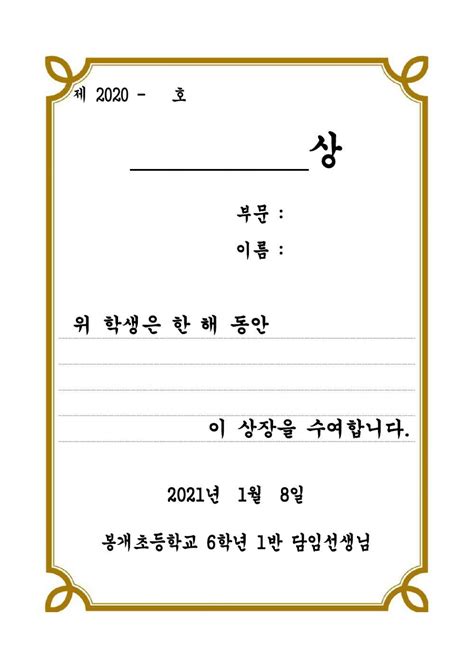 제 2020 -    호
____________상
부문 :
이름 :
위 학생은 한 해 동안
이 상장을 수여합니다.
2021년  1월  8일
봉개초등학교 6학년 1반 담임선생님